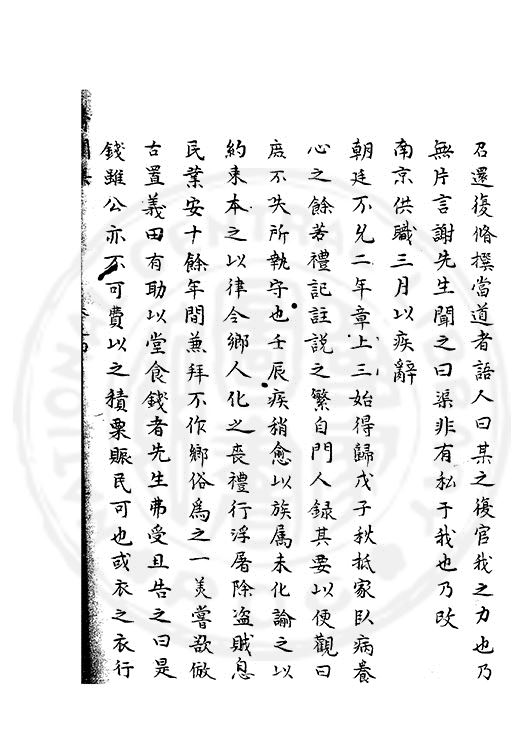 召還復脩撰當道者語人曰某之復官我之力也乃
無片言謝先生聞之曰渠非有私于我也乃改
南京供職三月以疾辭
朝廷不允二年章上三始得歸戊子秋抵家臥病養
心之餘若禮記註説之繁自門人録其要以便觀曰
庶不失所執守也壬辰疾稍愈以族属未化諭之以
約束本之以律令鄉人化之喪禮行浮屠除盗賊息
民業安十餘年間兼拜不作鄉俗爲之一美嘗欲倣
古置義田有助以堂食錢者先生弗受且告之曰是
錢雖公亦不可費以之積粟賑民可也或衣之衣行